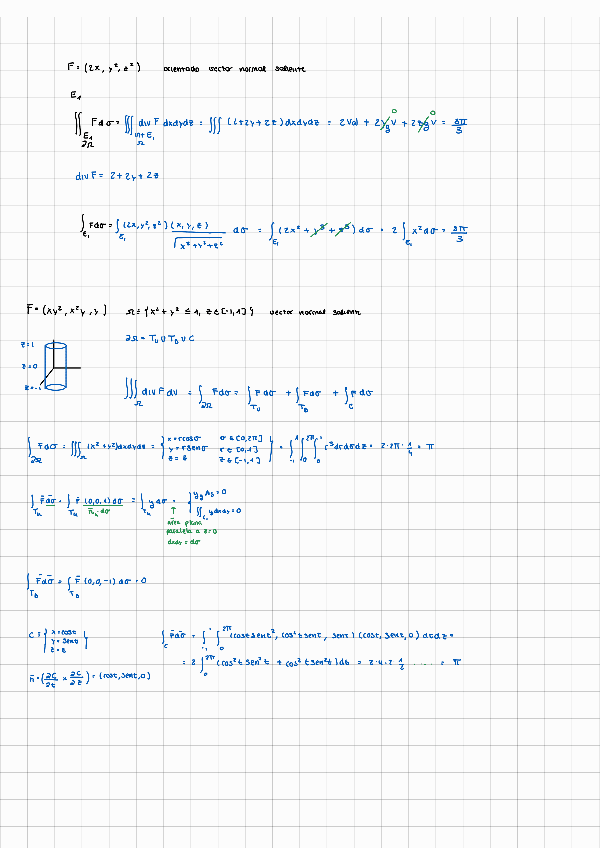 F = (2x, y², z²) orientado vector normal saliente
E₁
∬_{E₁ ∂Ω} F dσ = ∭_{int E₁ Ω} div F dxdydz = ∭ (2+2y+2z) dxdydz = 2 Vol + 2 y_g V + 2 z_g V = 8π/3
0 0
div F = 2 + 2y + 2z
∫_{E₁} F dσ = ∫_{E₁} (2x, y², z²) (x, y, z) / √(x²+y²+z²) dσ = ∫_{E₁} (2x² + y³ + z³) dσ = 2 ∫_{E₁} x² dσ = 8π/3
F = (xy², x²y, y) Ω = {x² + y² ≤ 1, z ∈ [-1,1]} vector normal saliente
z=1
z=0
z=-1
∂Ω = T_u ∪ T_D ∪ C
∭_Ω div F dV = ∫_{∂Ω} F dσ = ∫_{T_u} F dσ + ∫_{T_D} F dσ + ∫_C F dσ
∫_{∂Ω} F dσ = ∭_Ω (x² + y²) dxdydz = { x = r cos σ σ ∈ [0,2π]
y = r sen σ r ∈ [0,1]
z = z z ∈ [-1,1] } = ∫_{-1}^{1} ∫_0^{2π} ∫_0^1 r³ dr dσ dz = 2·2π·1/4 = π
∫_{T_u} F dσ = ∫_{T_u} F (0,0,1) dσ = ∫_{T_u} y dσ = { y_g A_S = 0
∬ y dxdy = 0
n_u · dσ
↑
área plana
paralela a z=0
dxdy = dσ
∫_{T_D} F dσ = ∫_{T_D} F (0,0,-1) dσ = 0
C ≡ { x = cos t
y = sen t
z = z }
∫_C F dσ = ∫_{-1}^{1} ∫_0^{2π} (cos t sen t², cos² t sen t, sen t) (cos t, sen t, 0) dt dz =
= 2 ∫_0^{2π} (cos² t sen² t + cos² t sen² t) dt = 2·4·2 1/2 ...... = π
n = (∂C/∂t × ∂C/∂z) = (cos t, sen t, 0)